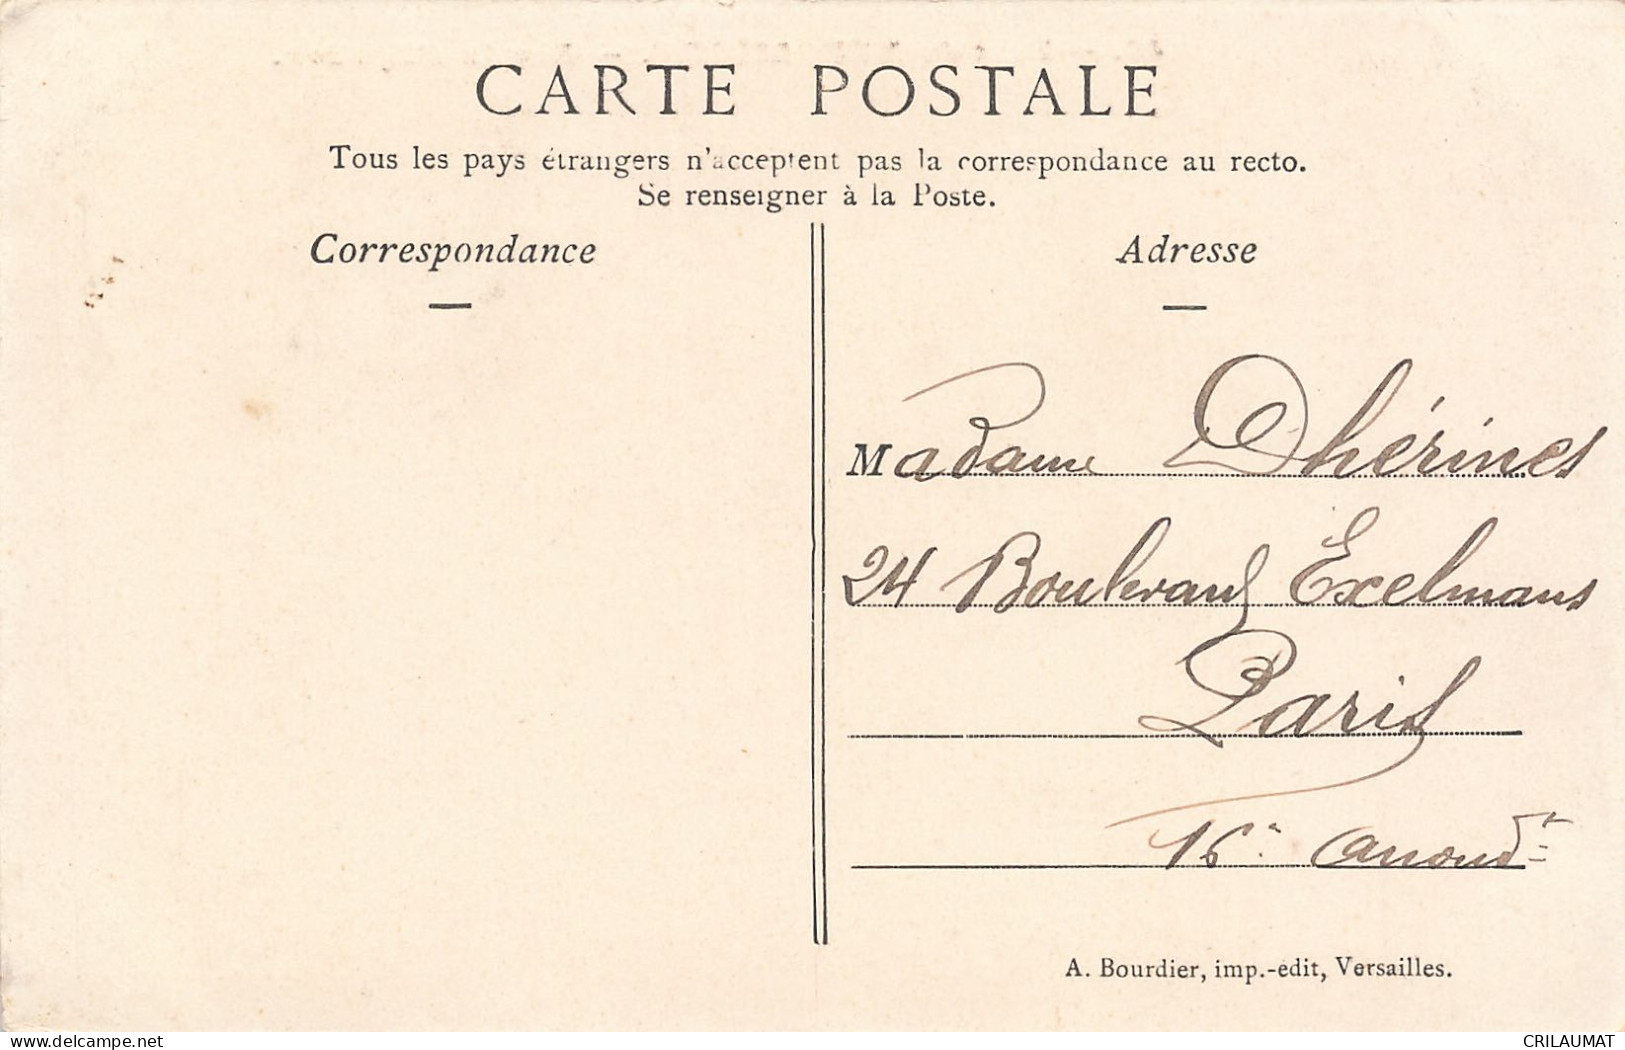 CARTE POSTALE
Tous les pays étrangers n'acceptent pas la correspondance au recto.
Se renseigner à la Poste.
Correspondance
Adresse
Madame Dhérines
24 Boulevard Exelmans
Paris
16e arrondt
A. Bourdier, imp.-édit, Versailles.
delcampe.net
CRILAUMAT